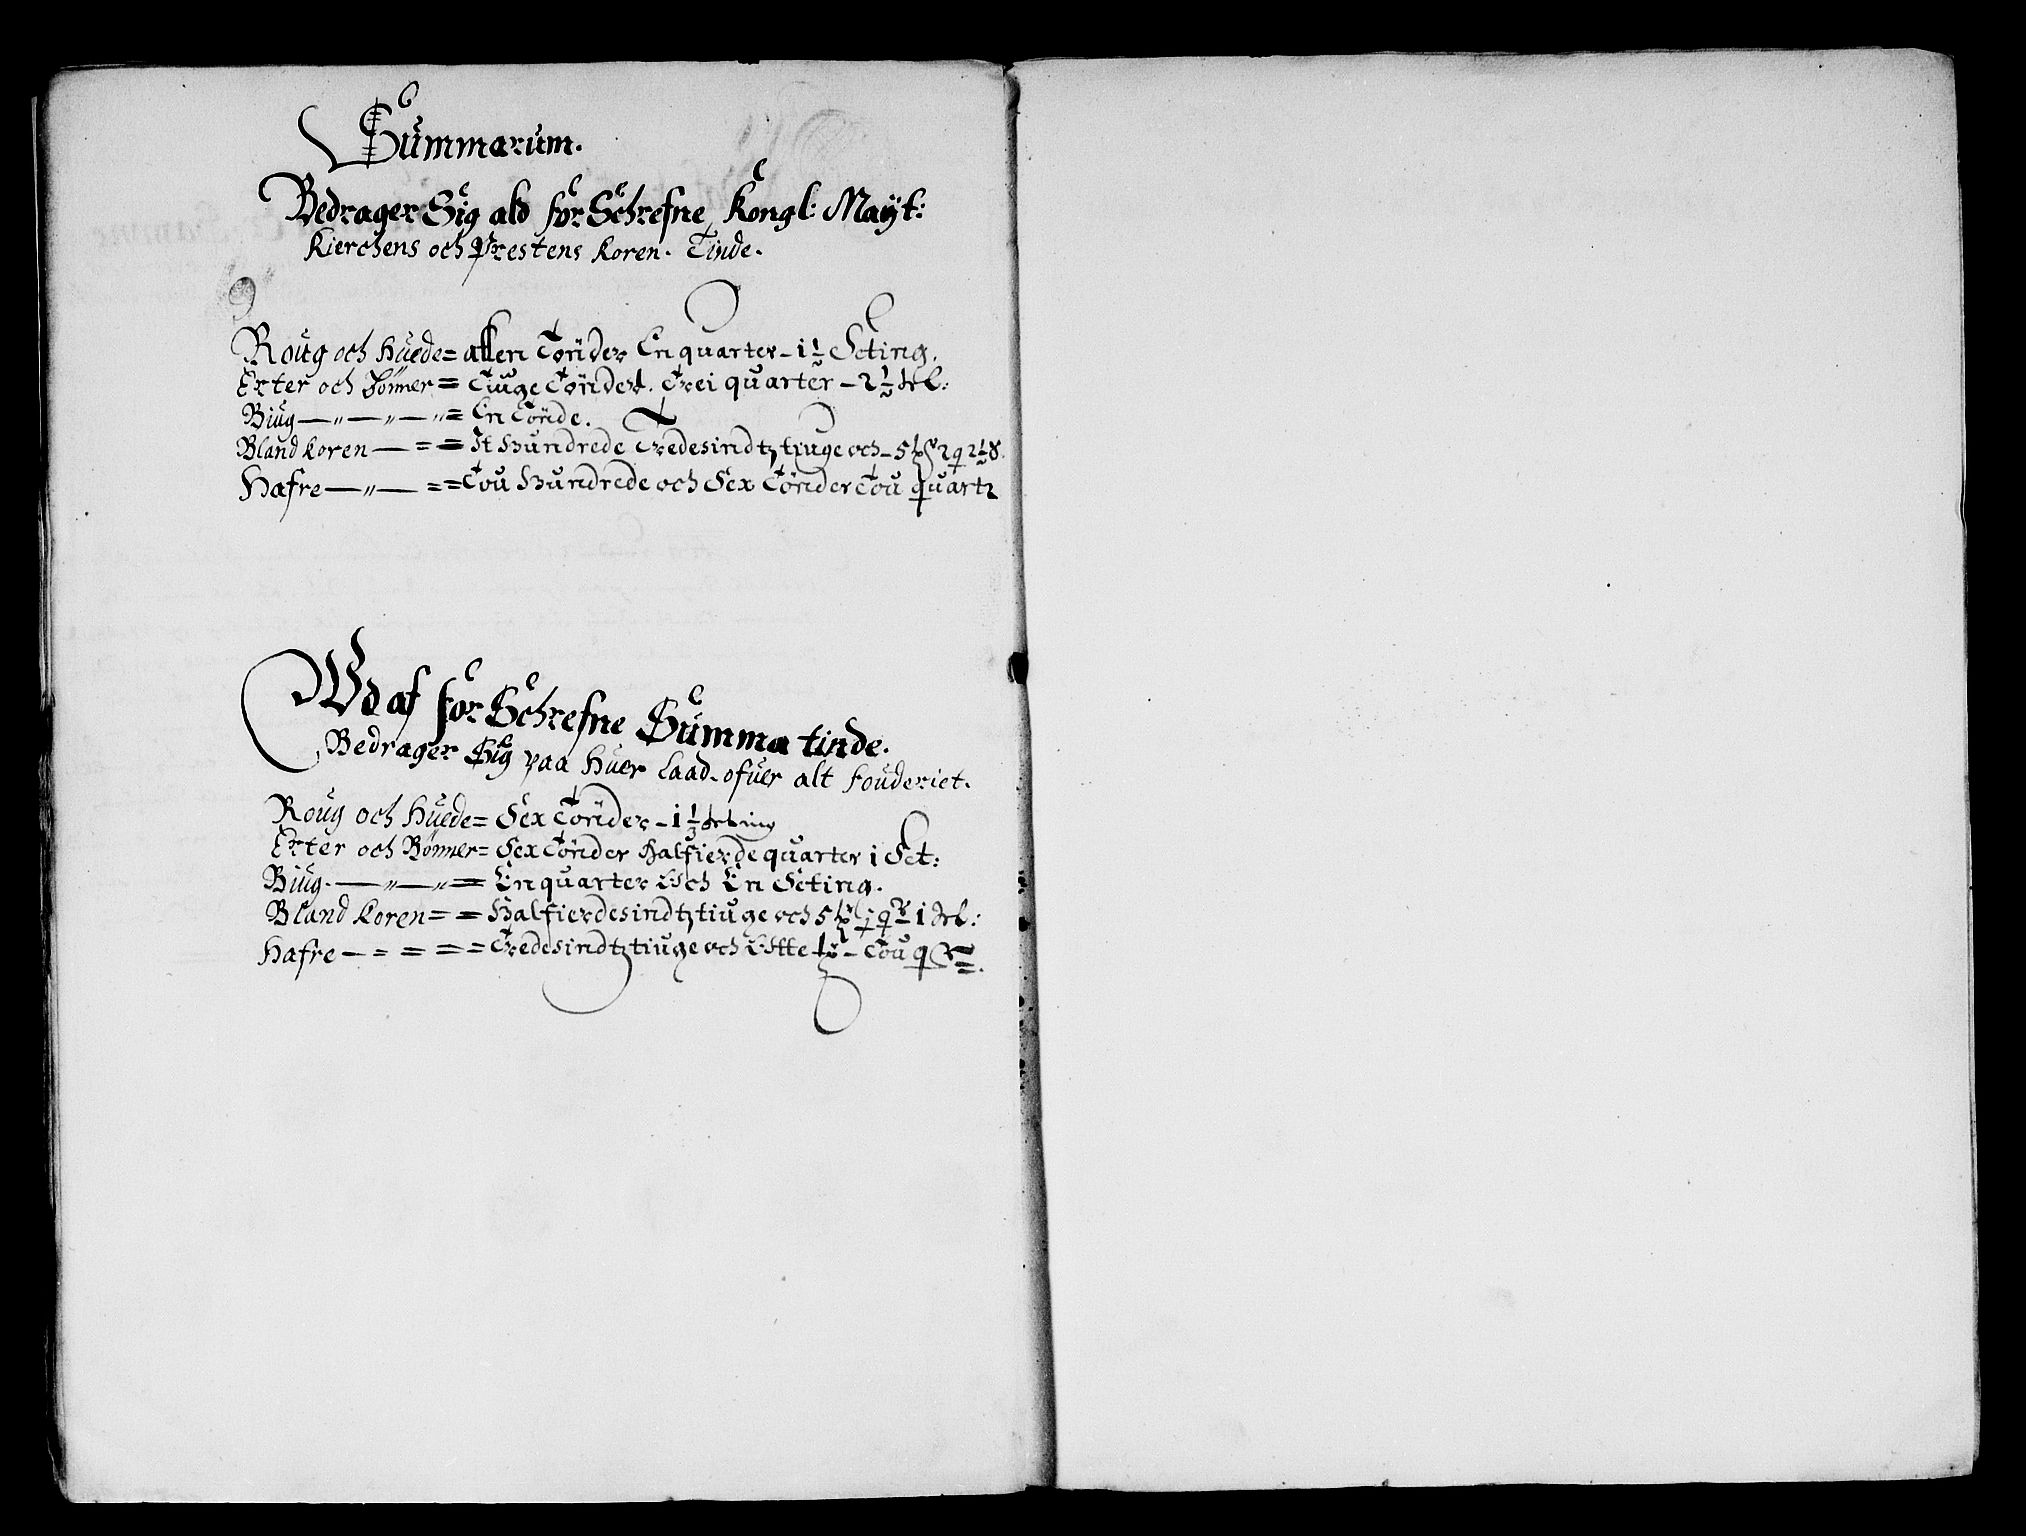 Summarum.
Bedrager Sig ald for Schrefne Kongl: Mayt:
Kierchens och Prestens Koren. Tinde.
Roug och Huede = atten Tönder En quarter – 1 1/2 Seting.
Erter och Bönner = Tiuge Tönder. Trei quarter – 2 1/2 
Biug — „ — „ — „ = En Tönde.
Bland Koren — = = It Hundrede Tredesindtz tiuge och – 5
Hafre — „ — = = Tou Hundrede och Sex Tönder Tou quart
Wd af for Schrefne Summa tinde.
Bedrager Sig paa Huer Laad ofuer alt Fouderiet.
Roug och Huede = Sex Tönder – 1
Erter och Bönner = Sex Tönder Halfierde quarter 1 Set:
Biug. — „ — „ = En quarter Och En Seting.
Bland Koren = = Halfierdesindtz tiuge och 5
Hafre — = = = = Tredesindtz tiuge och Otte – Tou